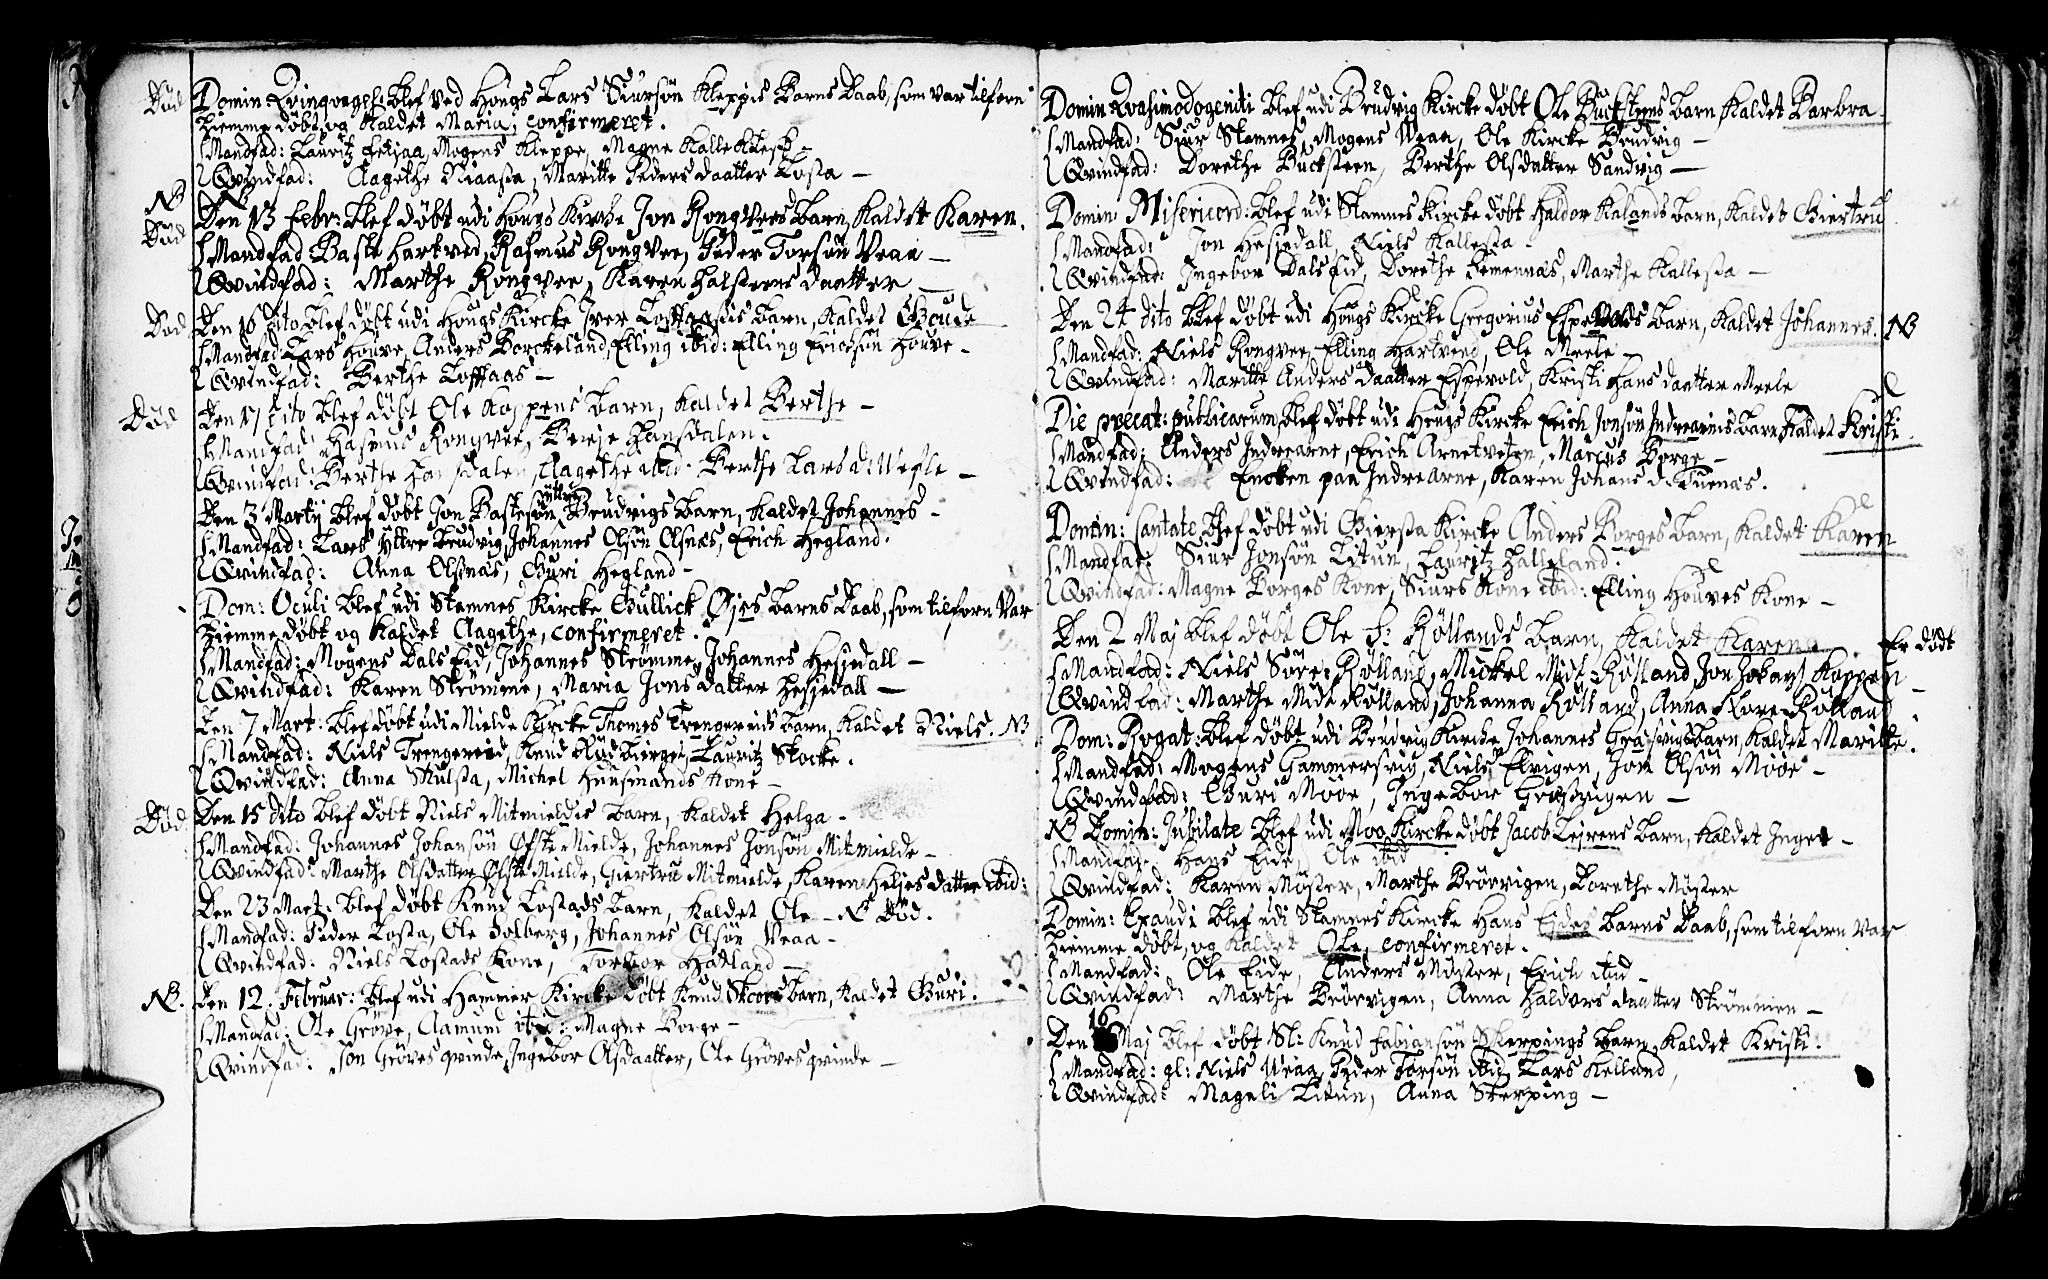 Død Domin Qvinqvages: blef ved Hougs Lars Siursøn Kleppis Barns Daab, som var tilforn
hiemme døbt og kaldet Maria, confirmeret.
Mandfad: Lauritz Mogens Kleppe, Magne
Qvindfad: Aagethe Maritte Peders daatter Losta
NB Død Den 13 Febr: blef døbt udi Hougs Kirche Jon Rongvees barn, kaldet Karen.
Mandfad Baste Hartved, Rasmus Rongvee, Peder Torsøn Veaa
Qvindfad: Marthe Rongvee, Karen Halsteens daatter
Død Den 16 dito blef døbt udi Hougs Kircke Iver barn, kaldet
Mandfad Lars Houve, Anders Borckeland, Elling ibid: Elling Erichsøn Houve
Qvindfad: Berthe
Død Den 17 dito blef døbt Ole Koppens barn, kaldet Berthe
Mandfad Rasmus Rongvee, Børje Hansdalen.
Qvindfad: Berthe Hansdalen, Aagethe ibid. Berthe Lars d:
Den 3 Martij blef døbt Jon Bastesøn Yttre Brudvigs barn, kaldet Johannes
Mandfad: Lars Yttre Brudvig, Johannes Olsøn Olsnæs, Erich Hegland.
Qvindfad: Anna Olsnæs, Guri Hegland
Dom: Oculi blef udi Stamnes Kircke Gullick Øjes barns Daab, som tilforn var
hiemme døbt og kaldet Aagethe, confirmeret.
Mandfad: Mogens Dals Eid, Johannes Strømme, Johannes Hesjedall
Qvindfad: Karen Strømme, Maria Jons datter Hesjedall
Den 7 Mart: blef døbt udi Mielde Kircke Thomes Trengereids barn, kaldet Niels. NB
Mandfad: Niels Trengereid, Knud Lauritz Stocke.
Qvindfad: Anna Michel Huusmands kone
Død Den 15 dito blef døbt Niels Mitmieldis barn, kaldet Helga
Mandfad: Johannes Johansøn Øfste Mielde, Johannes Jonsøn Mitmielde
Qvindfad: Marthe Olsdatter Øfste Mielde, Giertru Mitmielde, Karen Heljes datter ibid:
Den 23 Mart: blef døbt Knud Lostads barn, kaldet Ole NB Død.
Mandfad: Peder Losta, Ole Solberg, Johannes Olsøn Veaa
Qvindfad: Niels Lostads kone, Torbor Hatland
NB. Den 12. Februar: blef udi Hammer Kircke døbt Knud barn, kaldet Guri.
Mandfad: Ole Grøve, Aamund ibid: Magne Borge
Qvindfad: Jon Grøves qvinde, Ingebor Olsdaatter, Ole Grøves qvinde
Domin Qvasimodogeniti blef udi Brudvig Kircke døbt Ole Bucksteens barn, kaldet Barbra
Mandfad: Siur Stamnes, Mogens Veaa, Ole Kircke Brudvig
Qvindfad: Dorethe Bucksteen, Berthe Olsdatter Sandvig
Domin: Misericord: blef udi Stamnes Kircke døbt Haldor Kalands barn, kaldet Giertrud.
Mandfad: Jon Hesjedall, Niels Kallesta
Qvindfad: Ingebor Dals Eid, Dorethe Marthe Kallesta
Den 24 dito blef døbt udi Hougs Kircke Gregorius Espevolds barn, kaldet Johannes. NB
Mandfad: Niels Rongvee, Elling Hartveed, Ole Mæele
Qvindfad: Maritte Anders daatter Espevold, Kristi Hans daatter Mæele
Die precat: publicarum blef døbt udi Hougs Kircke Erich Jonsøn Indrearnis barn kaldet Kristi.
Mandfad: Anders Indrearne, Erich Arnetveten, Marcus Borge
Qvindfad: Encken paa Indrearne, Karen Johans d. Tuenæs.
Domin: Cantate blef døbt udi Giersta Kircke Anders Borges barn, kaldet Karen
Mandfad: Siur Jonsøn Litun, Lauritz Halleland.
Qvindfad: Magne Borges kone, Siurs kone ibid: Elling Houves kone
Den 2 Maj blef døbt Ole S: Røllands barn, kaldet Karen. Er dødt
Mandfad: Niels Søre Rølland, Mickel Midt-Rølland, Jon Johans Koppen
Qvindfad: Marthe Midt Rølland, Johanna Rølland, Anna Nore Rølland
Dom: Rogat: blef døbt udi Brudvig Kirche Johannes barn, kaldet Maritte.
Mandfad: Mogens Gammersvig, Niels Elvigen, Jon Olsøn Møøe
Qvindfad: Guri Møøe, Ingebor
NB Domin: Jubilate blef udi Moo Kircke døbt Jacob Lejrens barn, kaldet Inger
Mandfad: Hans Eide, Ole ibid
Qvindfad: Karen Møster, Marthe Brørvigen, Dorethe Møster
Domin: Exaudi blef udi Stamnes Kircke Hans Eides barns Daab, som tilforn var
hiemme døbt, og kaldet Ole, confirmeret.
Mandfad: Ole Eide, Anders Møster, Erich ibid
Qvindfad: Marthe Brørvigen, Anna Haldors daatter Strømmen
Den 16 Maj blef døbt Sl: Knud Fabiansøn Skerpings barn, kaldet Kristi.
Mandfad: gl: Niels Veaa, Peder Torsøn ibid, Lars Helland,
Qvindfad: Mageli Litun, Anna Skerping